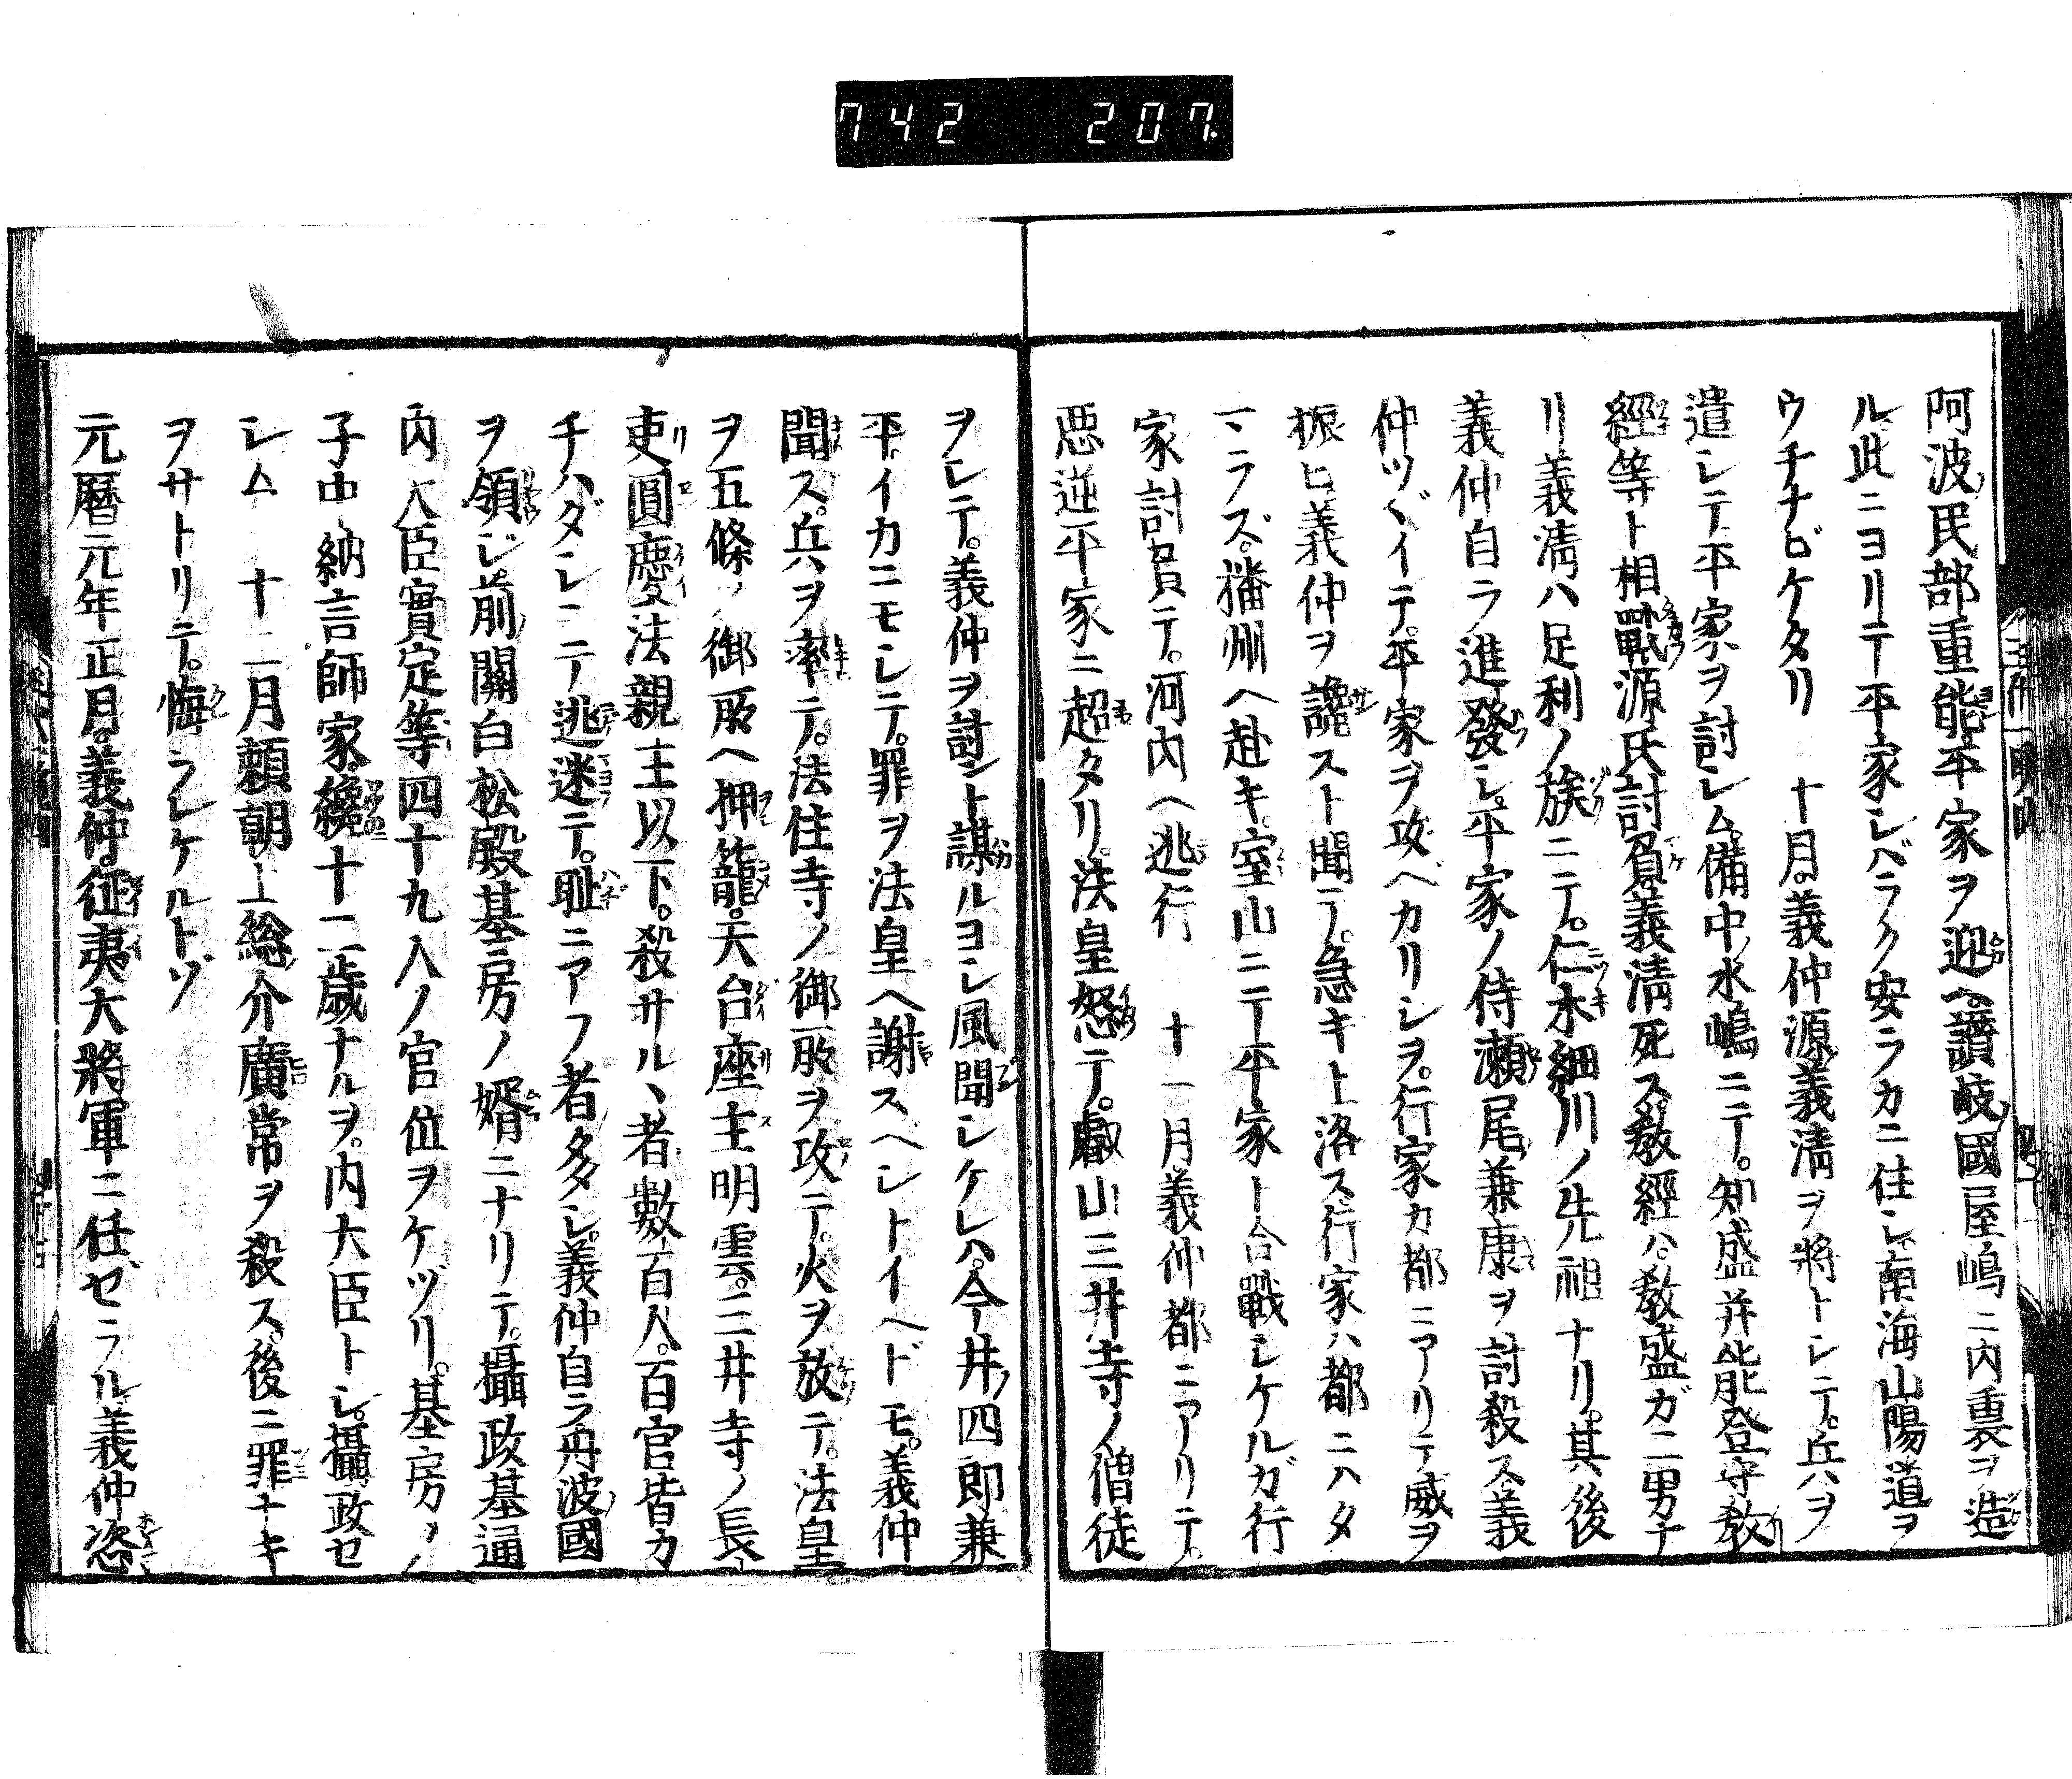 742 207
阿波民部重能平家ヲ迎ヘ。讚岐國屋嶋ニ内裏ヲ造
ル此ニヨリテ平家シバラク安ラカニ住シ南海山陽道ヲ
ウチナビケタリ 十月。義仲源義淸ヲ將トシテ。兵ヲ
遣シテ平家ヲ討シム。備中水嶋ニテ。知盛并能登守教
經等ト相戰源氏討負。義淸死ス教經ハ。教盛ガ二男ナ
リ義淸ハ足利ノ族ニテ。仁木細川ノ先祖ナリ。其後
義仲自ラ進發シ。平家ノ侍瀬尾兼康ヲ討殺ス義
仲ツヾイテ。平家ヲ攻ベカリシヲ。行家カ都ニアリテ威ヲ
振ヒ義仲ヲ讒スト聞テ。急キ上洛ス行家ハ都ニハタ
マラズ。播州ヘ赴キ。室山ニテ平家ト合戰シケルガ行
家討負テ。河内ヘ逃行 十一月義仲都ニアリテ。
惡逆平家ニ超タリ。法皇怒テ。叡山三井寺ノ僧徒
ヲシテ。義仲ヲ討ント謀ルヨシ風聞シケレハ。今井四郎兼
平。イカニモシテ。罪ヲ法皇ヘ謝スヘシトイヘドモ。義仲
聞ス。兵ヲ率テ。法住寺ノ御所ヲ攻テ。火ヲ放テ。法皇
ヲ五條ノ御所ヘ押籠。天台座主明雲。三井寺ノ長
吏圓慶法親王以下。殺サルヽ者數百人。百官皆カ
チハダシニテ逃迷テ。耻ニアフ者多シ。義仲自ラ丹波國
ヲ領シ。前關白松殿基房ノ婿ニナリテ。攝政基通
内大臣實定等四十九人ノ官位ヲケヅリ。基房ノ
子中納言師家。纔十二歳ナルヲ。内大臣トシ。攝政セ
シム 十二月頼朝上総介廣常ヲ殺ス。後ニ罪ナキ
ヲサトリテ。悔シケルトゾ
元暦元年正月。義仲。征夷大將軍ニ任ゼラル義仲恣